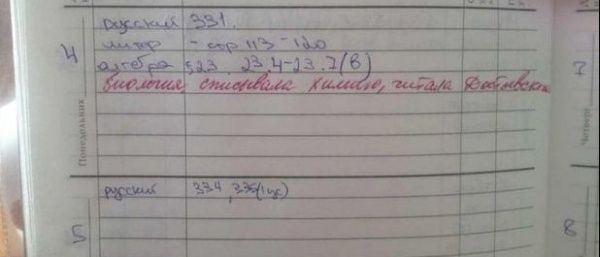 4
русский 331.
литер - стр 113-120
алгебра §23. 23.4-23.7(в)
биология списывала химию, читала Достоевск
Понедельник
русский 334, 335(1 ус)
5
7
Четверг
8